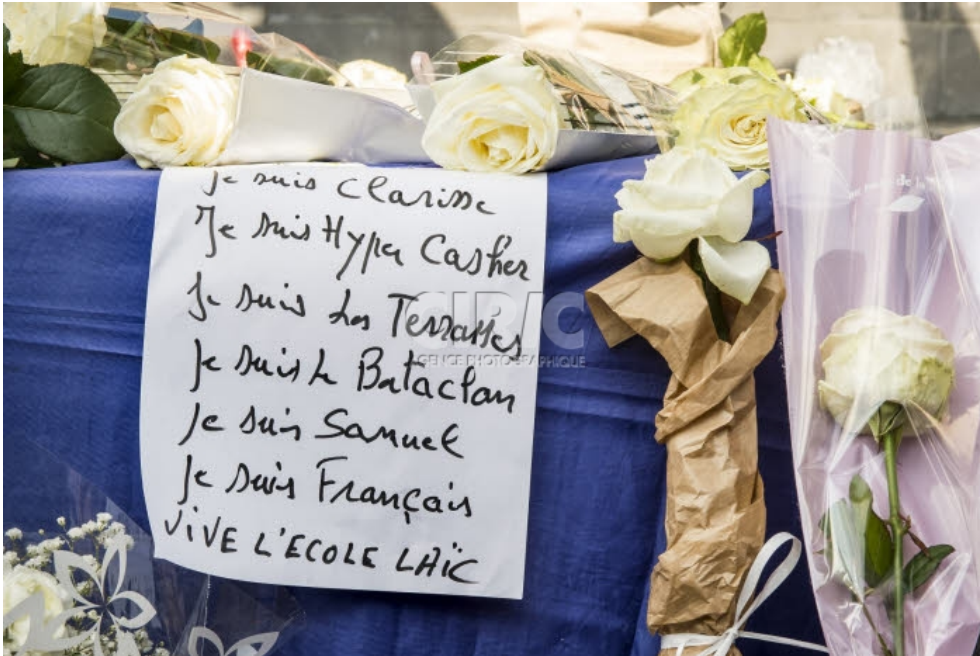 Je suis Clarisse
Je suis Hyper Casher
Je suis Les Terrasses
Je suis Le Bataclan
Je suis Samuel
Je suis Français
VIVE L'ECOLE LAÏC
CIRIC
AGENCE PHOTOGRAPHIQUE